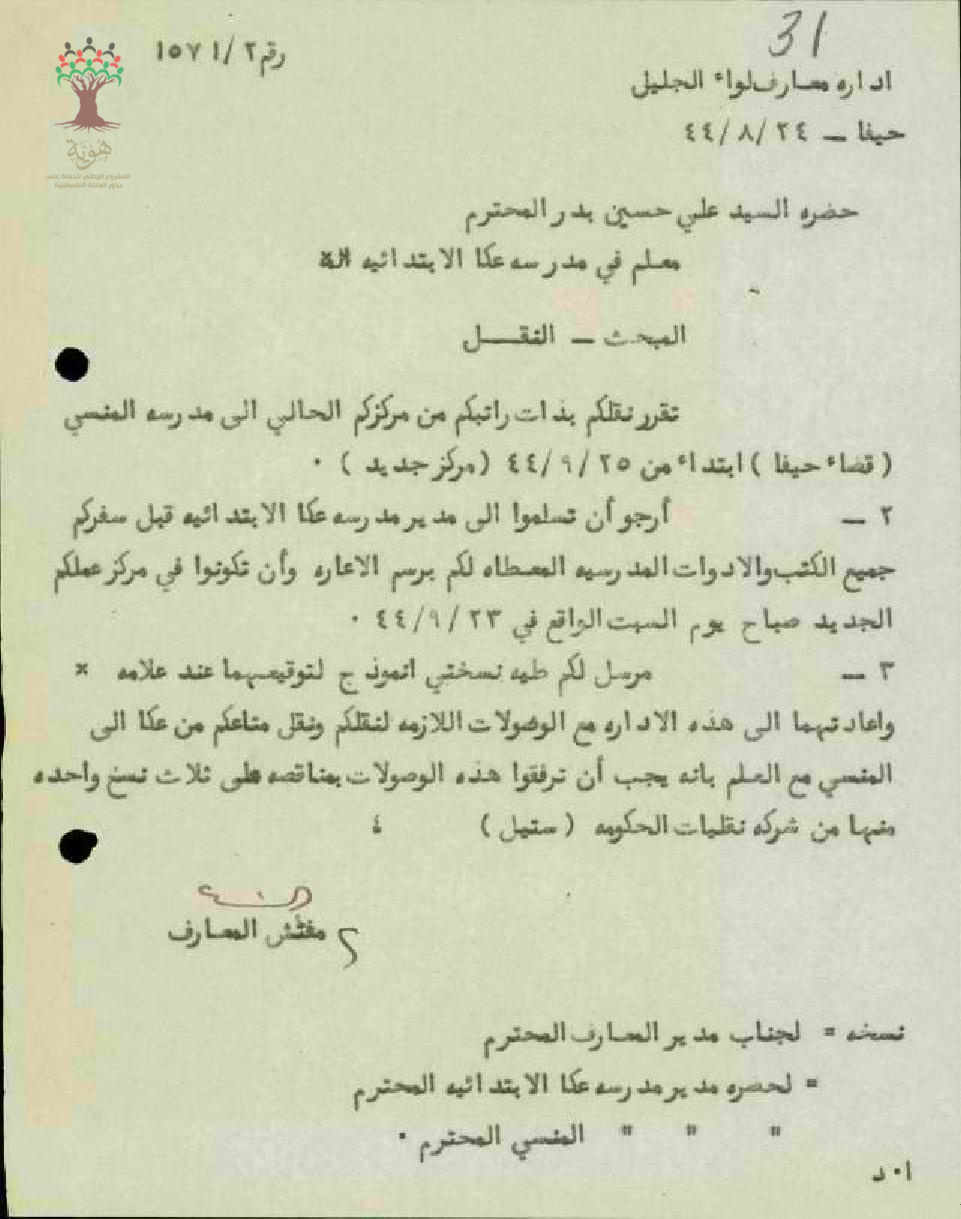 31
رقم ٢/ ١ ١٥٧
هوية
المشروع الوطني للحفاظ على
جذور العائلة الفلسطينية
اداره معارف لواء الجليل
حيفا — ٢٤ /٨/ ٤٤
حضره السيد علي حسين بدر المحترم
معلم في مدرسه عكا الابتدائيه
المبحث — النقـــل
تقرر نقلكم بذات راتبكم من مركزكم الحالي الى مدرسه المنسي
( قضاء حيفا ) ابتداء من ٢٥ /٩/ ٤٤ (مركز جديد ) ٠
٢ — أرجو أن تسلموا الى مدير مدرسه عكا الابتدائيه قبل سفركم
جميع الكتب والادوات المدرسيه المعطاه لكم برسم الاعاره وأن تكونوا في مركز عملكم
الجديد صباح يوم السبت الواقع في ٢٣ /٩/ ٤٤ ٠
٣ — مرسل لكم طيه نسختي انموذج لتوقيعهما عند علامه x
واعادتهما الى هذه الاداره مع الوصولات اللازمه لنقلكم ونقل متاعكم من عكا الى
المنسي مع العلم بانه يجب أن ترفقوا هذه الوصولات بمناقصه على ثلاث نسخ واحده
منها من شركه نقليات الحكومه ( ستيل )
مفتش المعارف
نسخه = لجناب مدير المعارف المحترم
= لحضره مدير مدرسه عكا الابتدائيه المحترم
" " " المنسي المحترم ٠
ا٠د